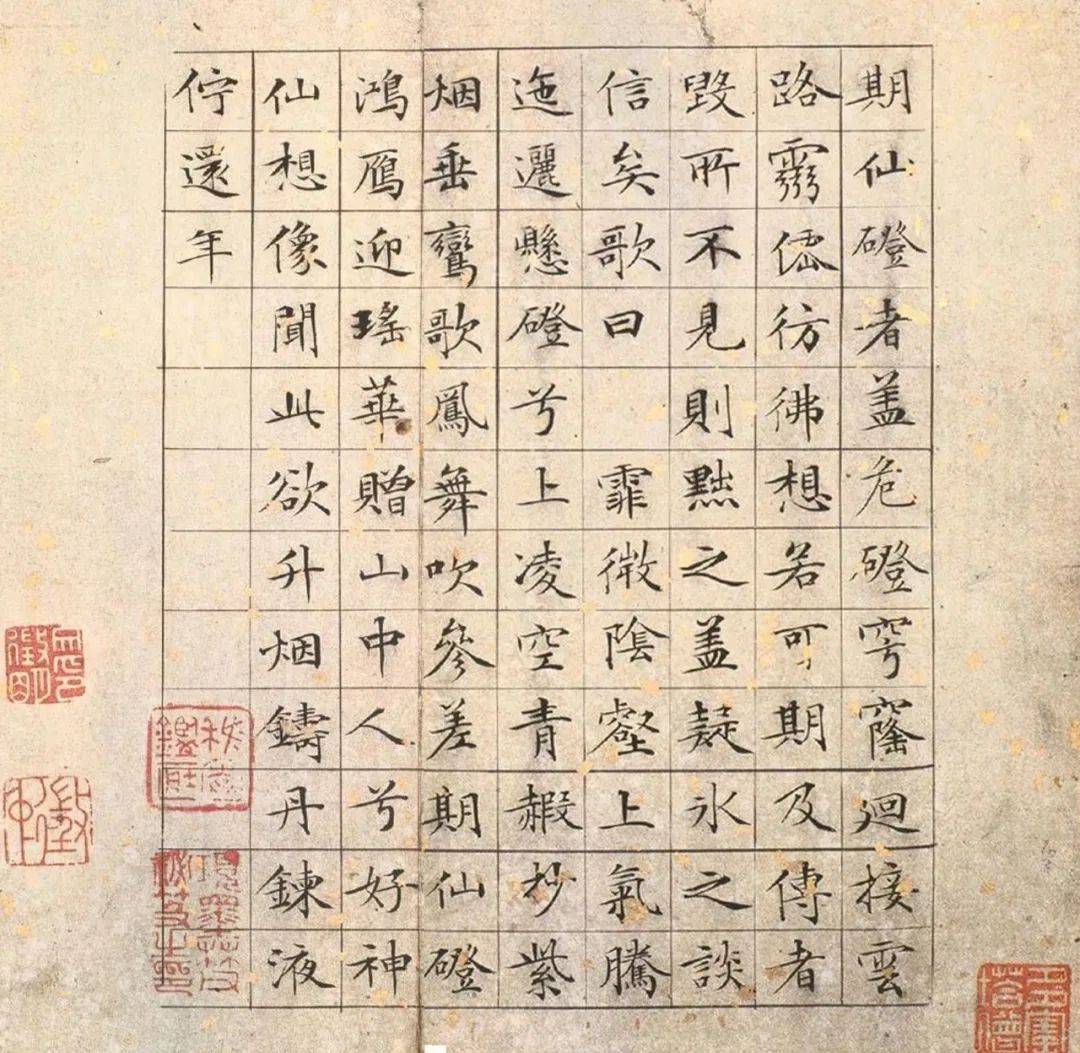 期仙磴者盖危磴穹窿迴接雲
路靈僊彷彿想若可期及傳者
毀所不見則黜之盖疑冰之談
信矣歌曰 霏微陰壑上氣騰
迤邐懸磴兮上凌空青赮杪紫
烟垂鸞歌鳳舞吹參差期仙磴
鴻鴈迎瑤華贈山中人兮好神
仙想像聞此欲升烟鑄丹鍊液
佇還年
項墨林父秘笈之印